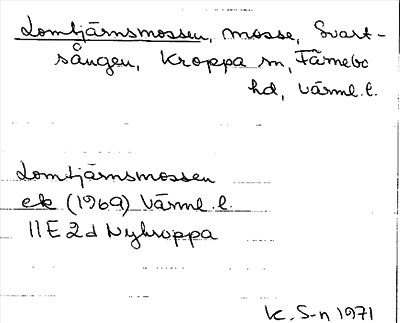 Lomtjärnsmossen, mosse, Svart-
sången, Kroppa sn, Färnebo
hd, Värml. l.
Lomtjärnsmossen
ek (1969) Värml. l.
11E2d Nykroppa
K. S-n 1971